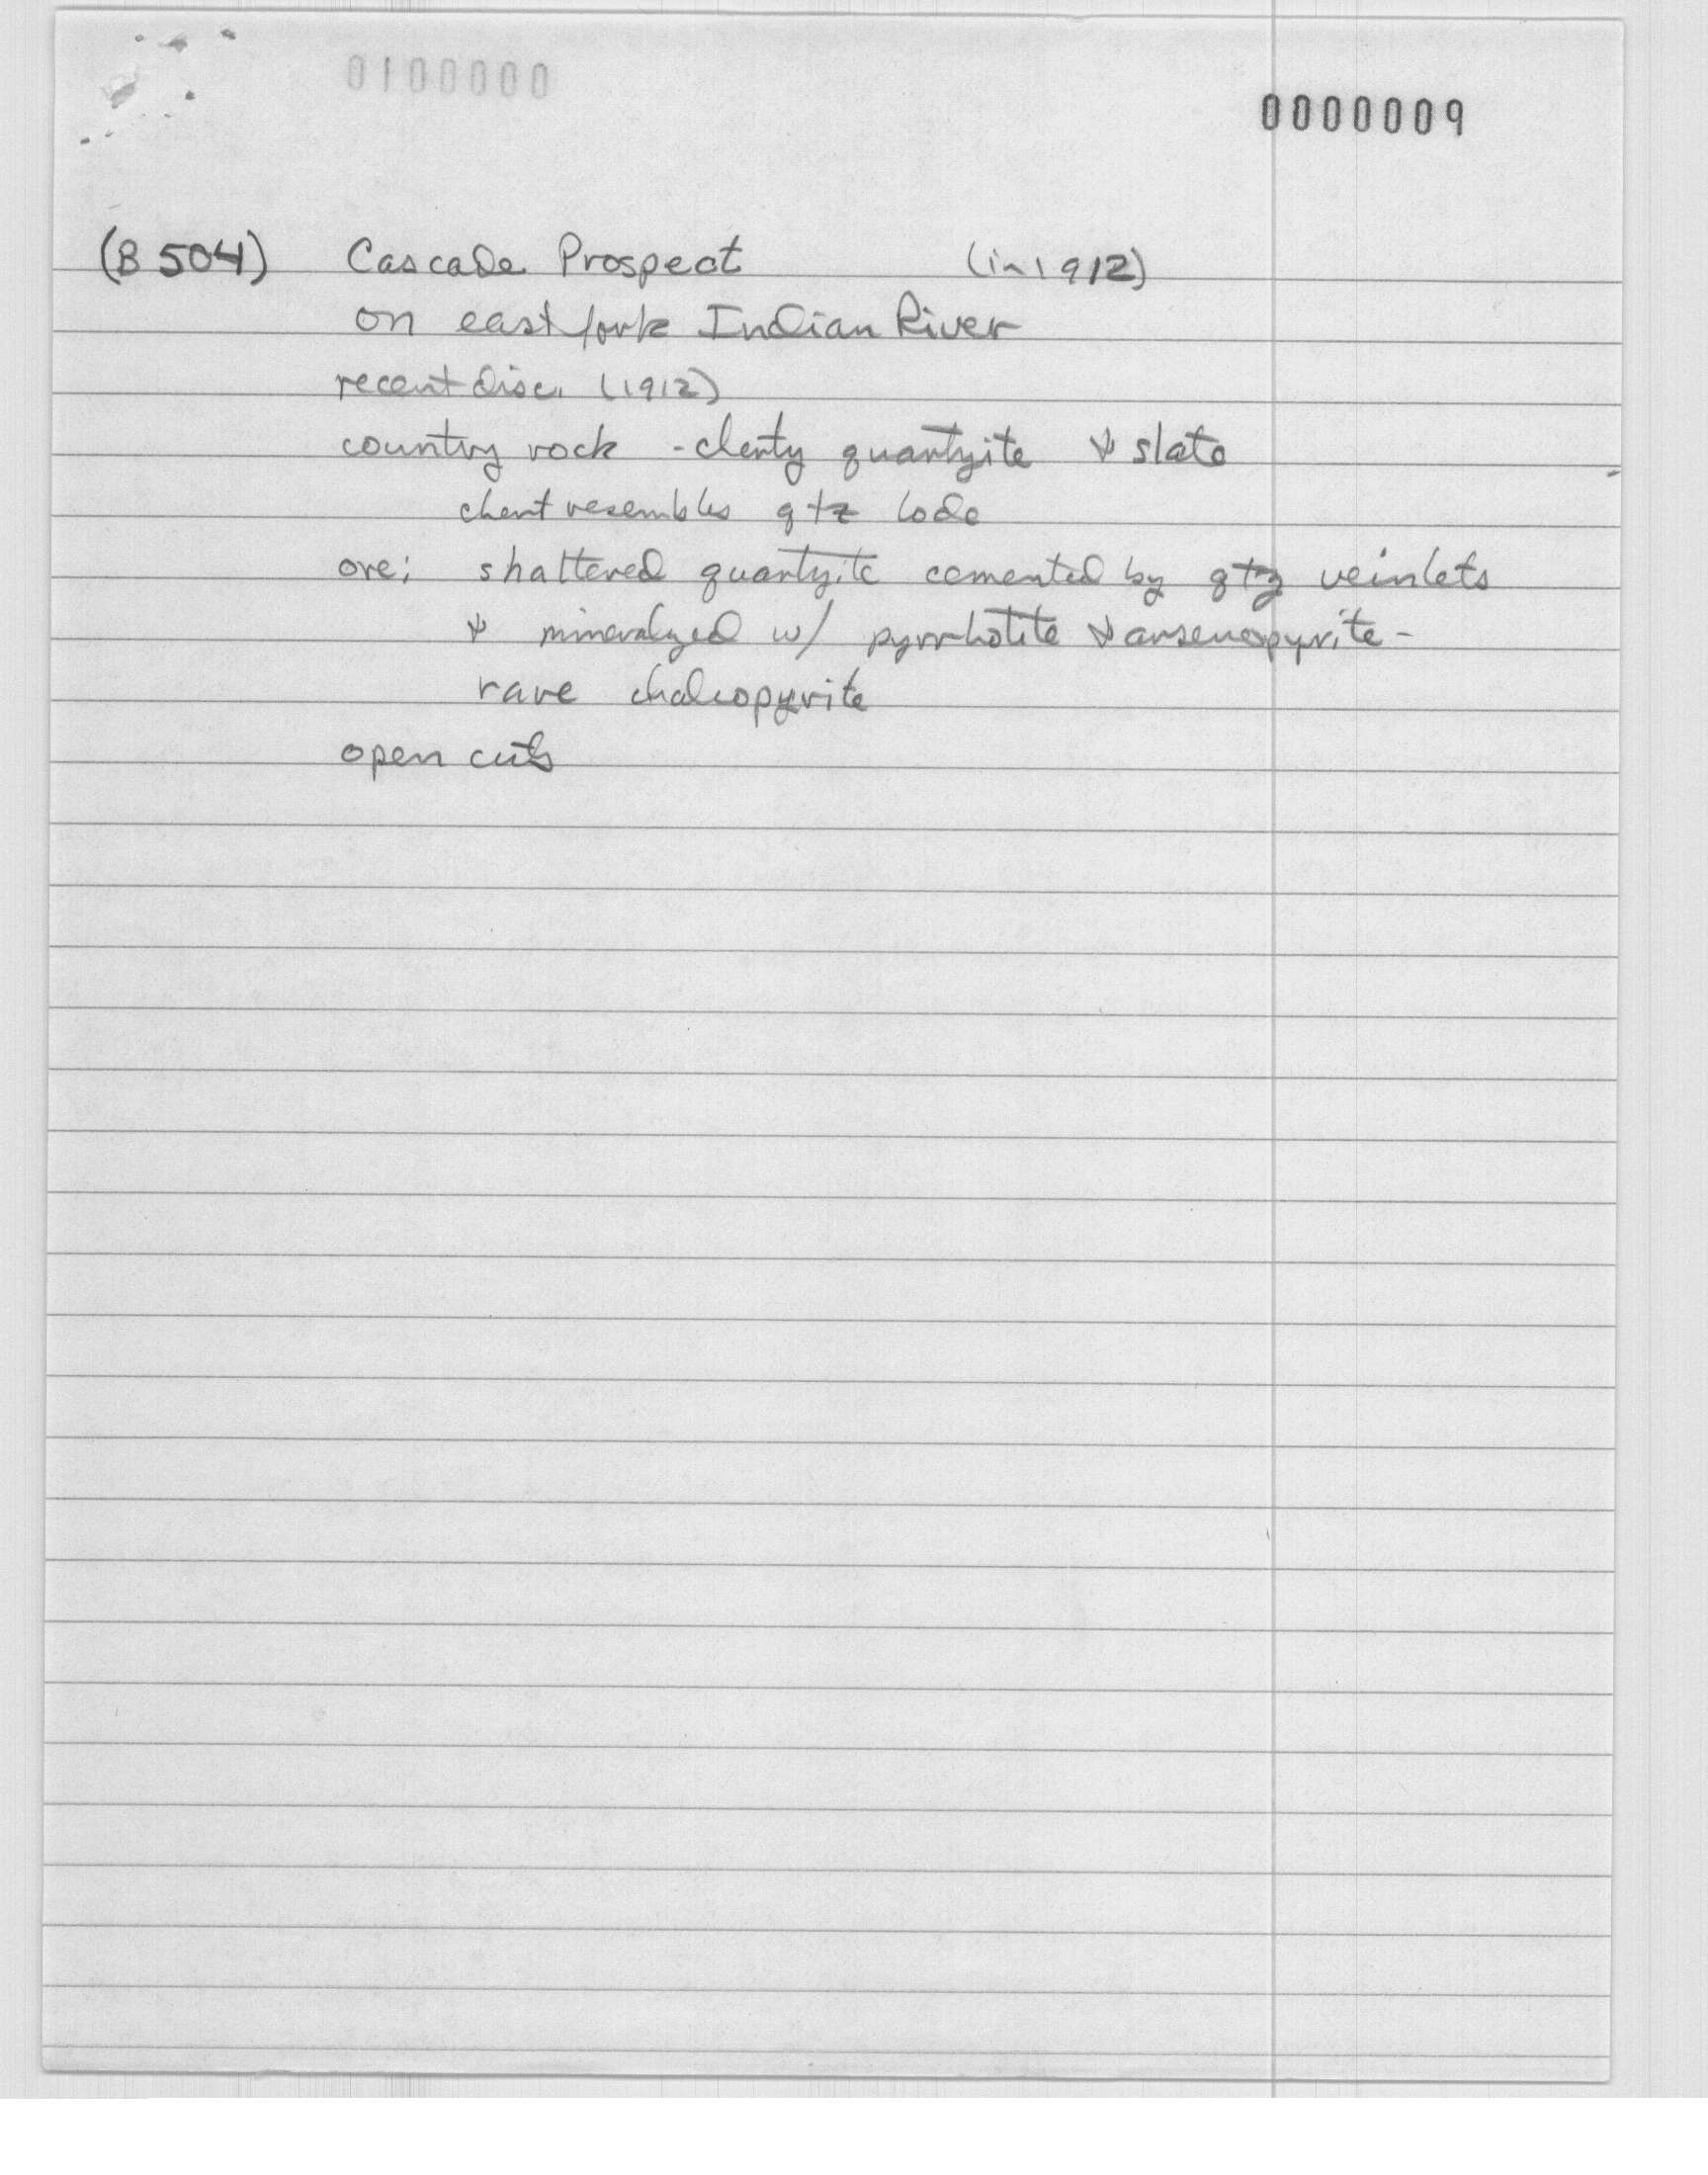 0100000
0000009
(B 504) Cascade Prospect (in 1912)
on east fork Indian River
recent disc. (1912)
country rock - cherty quartzite & slate
chert resembles qtz lode
ore: shattered quartzite cemented by qtz veinlets
& mineralized w/ pyrrhotite & arsenopyrite -
rare chalcopyrite
open cuts